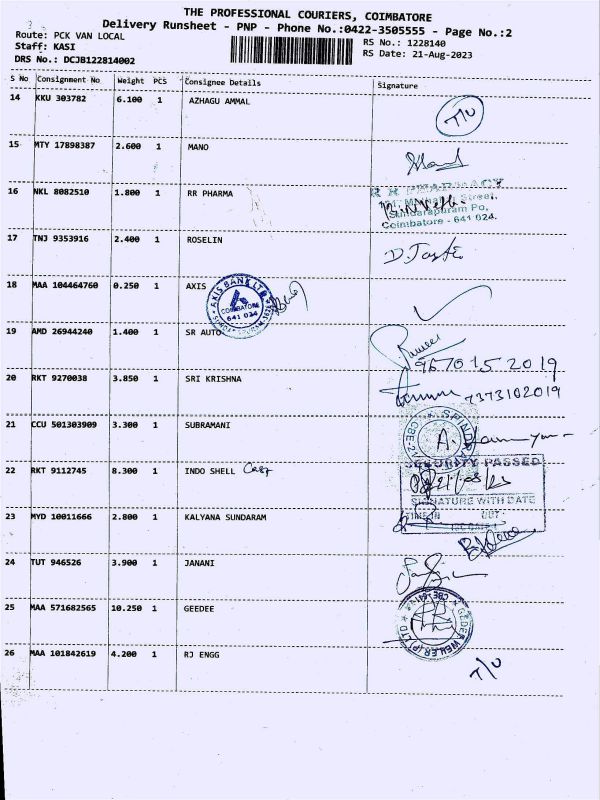 THE PROFESSIONAL COURIERS, COIMBATORE
Delivery Runsheet - PNP - Phone No.:0422-3505555 - Page No.:2
Route: PCK VAN LOCAL
Staff: KASI
DRS No.: DCJB122814002
RS No.: 1228140
RS Date: 21-Aug-2023
S No Consignment No Weight PCS Consignee Details Signature
14 KKU 303782 6.100 1 AZHAGU AMMAL T/U
15 MTY 17898387 2.600 1 MANO
16 NKL 8082510 1.800 1 RR PHARMA
R R PHARMACY
Street,
Sundarapuram Po,
Coimbatore - 641 024.
17 TNJ 9353916 2.400 1 ROSELIN
18 MAA 104464760 0.250 1 AXIS
AXIS BANK LTD.
COIMBATORE
641 024
19 AMD 26944240 1.400 1 SR AUTO
9670152019
20 RKT 9270038 3.850 1 SRI KRISHNA
7373102019
21 CCU 501303909 3.300 1 SUBRAMANI
22 RKT 9112745 8.300 1 INDO SHELL
SECURITY PASSED
SIGNATURE WITH DATE
TIME IN OUT
23 MYD 10011666 2.800 1 KALYANA SUNDARAM
24 TUT 946526 3.900 1 JANANI
25 MAA 571682565 10.250 1 GEEDEE
26 MAA 101842619 4.200 1 RJ ENGG T/U